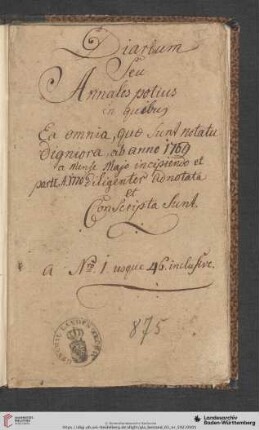 Diarium
Seu
Annales potius
in quibus
Ea omnia, quæ sunt notatu
digniora, ab anno 1769
a mense Majo incipiendo et
parte A. 1770 diligenter adnotata
et
Conscripta sunt.
a Nro. 1 usque 46. inclusive.
875
Landesarchiv
Baden-Württemberg